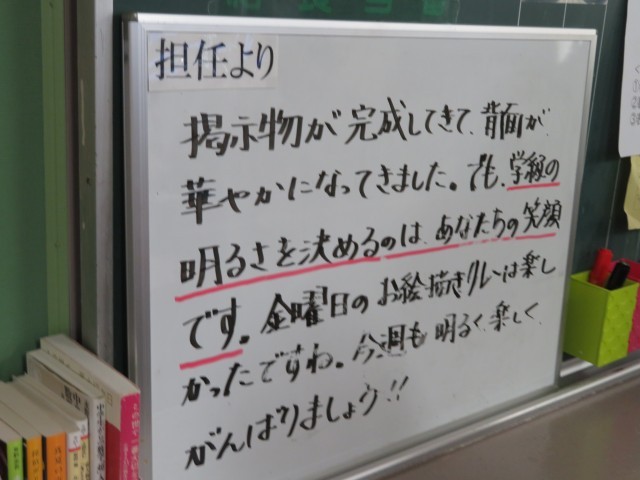 担任より
掲示物が完成してきて、背面が
華やかになってきました。でも、学級の
明るさを決めるのは、あなたちの笑顔
です。金曜日のお絵描きリレーは楽し
かったですね。今週も明るく、楽しく、
がんばりましょう!!